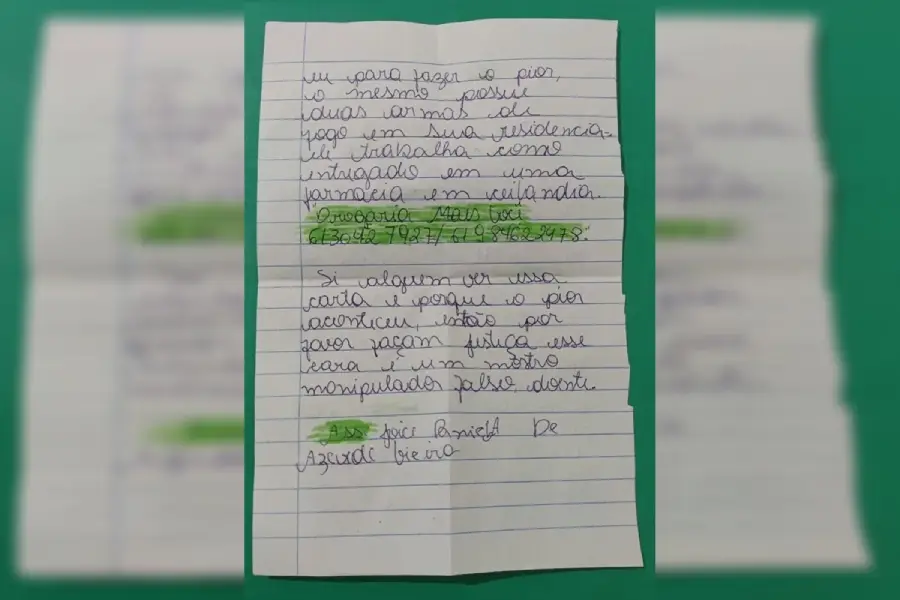 eu para fazer o pior,
o mesmo possui
duas armas de
fogo em sua residencia
ele trabalha como
entregado em uma
farmacia em ceilandia.
Drogaria Mais
si alguem ver essa
carta é porque o pior
aconticeu, então por
favor façam justiça esse
cara é um mostro
manipulador falso, doente.
Ass De
Azevede Vieira